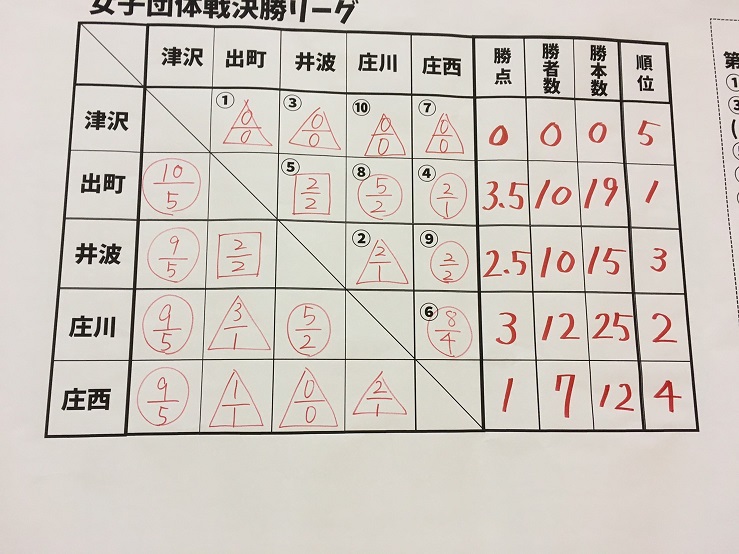 女子団体戦決勝リーグ
津沢 出町 井波 庄川 庄西 勝点 勝者数 勝本数 順位
津沢 ① 0/0 ③ 0/0 ⑩ 0/0 ⑦ 0/0 0 0 0 5
出町 10/5 ⑤ 2/2 ⑧ 5/2 ④ 2/1 3.5 10 19 1
井波 9/5 2/2 ② 2/1 ⑨ 2/2 2.5 10 15 3
庄川 9/5 3/1 5/2 ⑥ 8/4 3 12 25 2
庄西 9/5 1/1 0/0 2/1 1 7 12 4
第
①
③
(